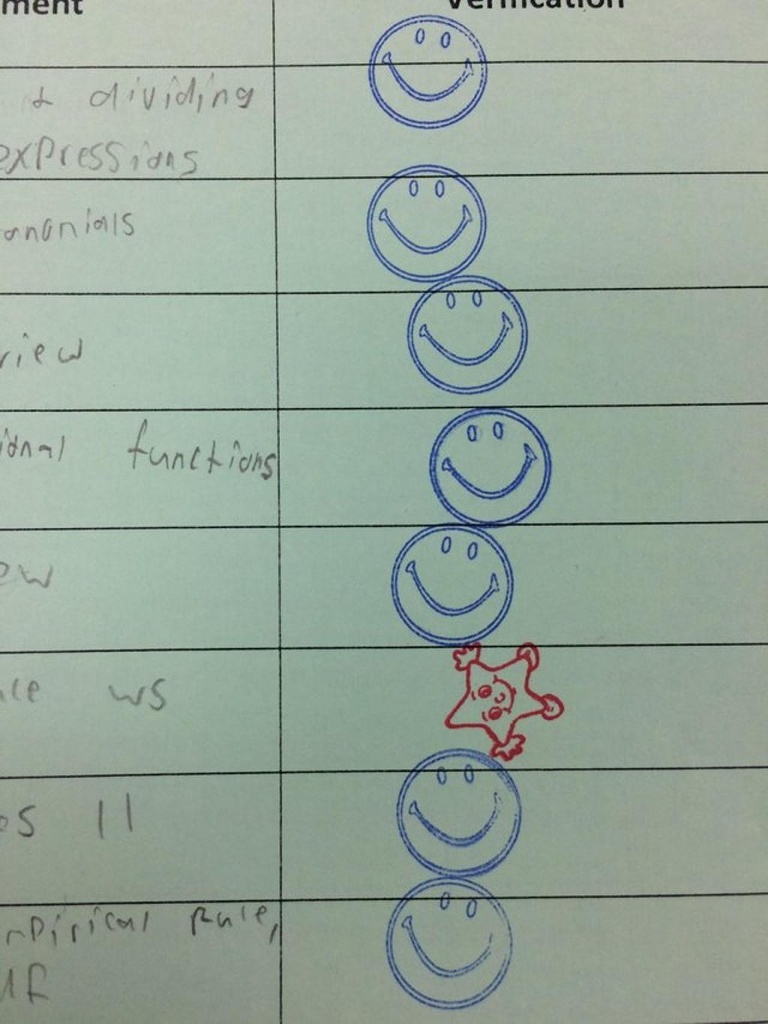 ment Verification
& dividing
expressions
onomials
view
ional functions
ew
ws
11
mpirical Rule,